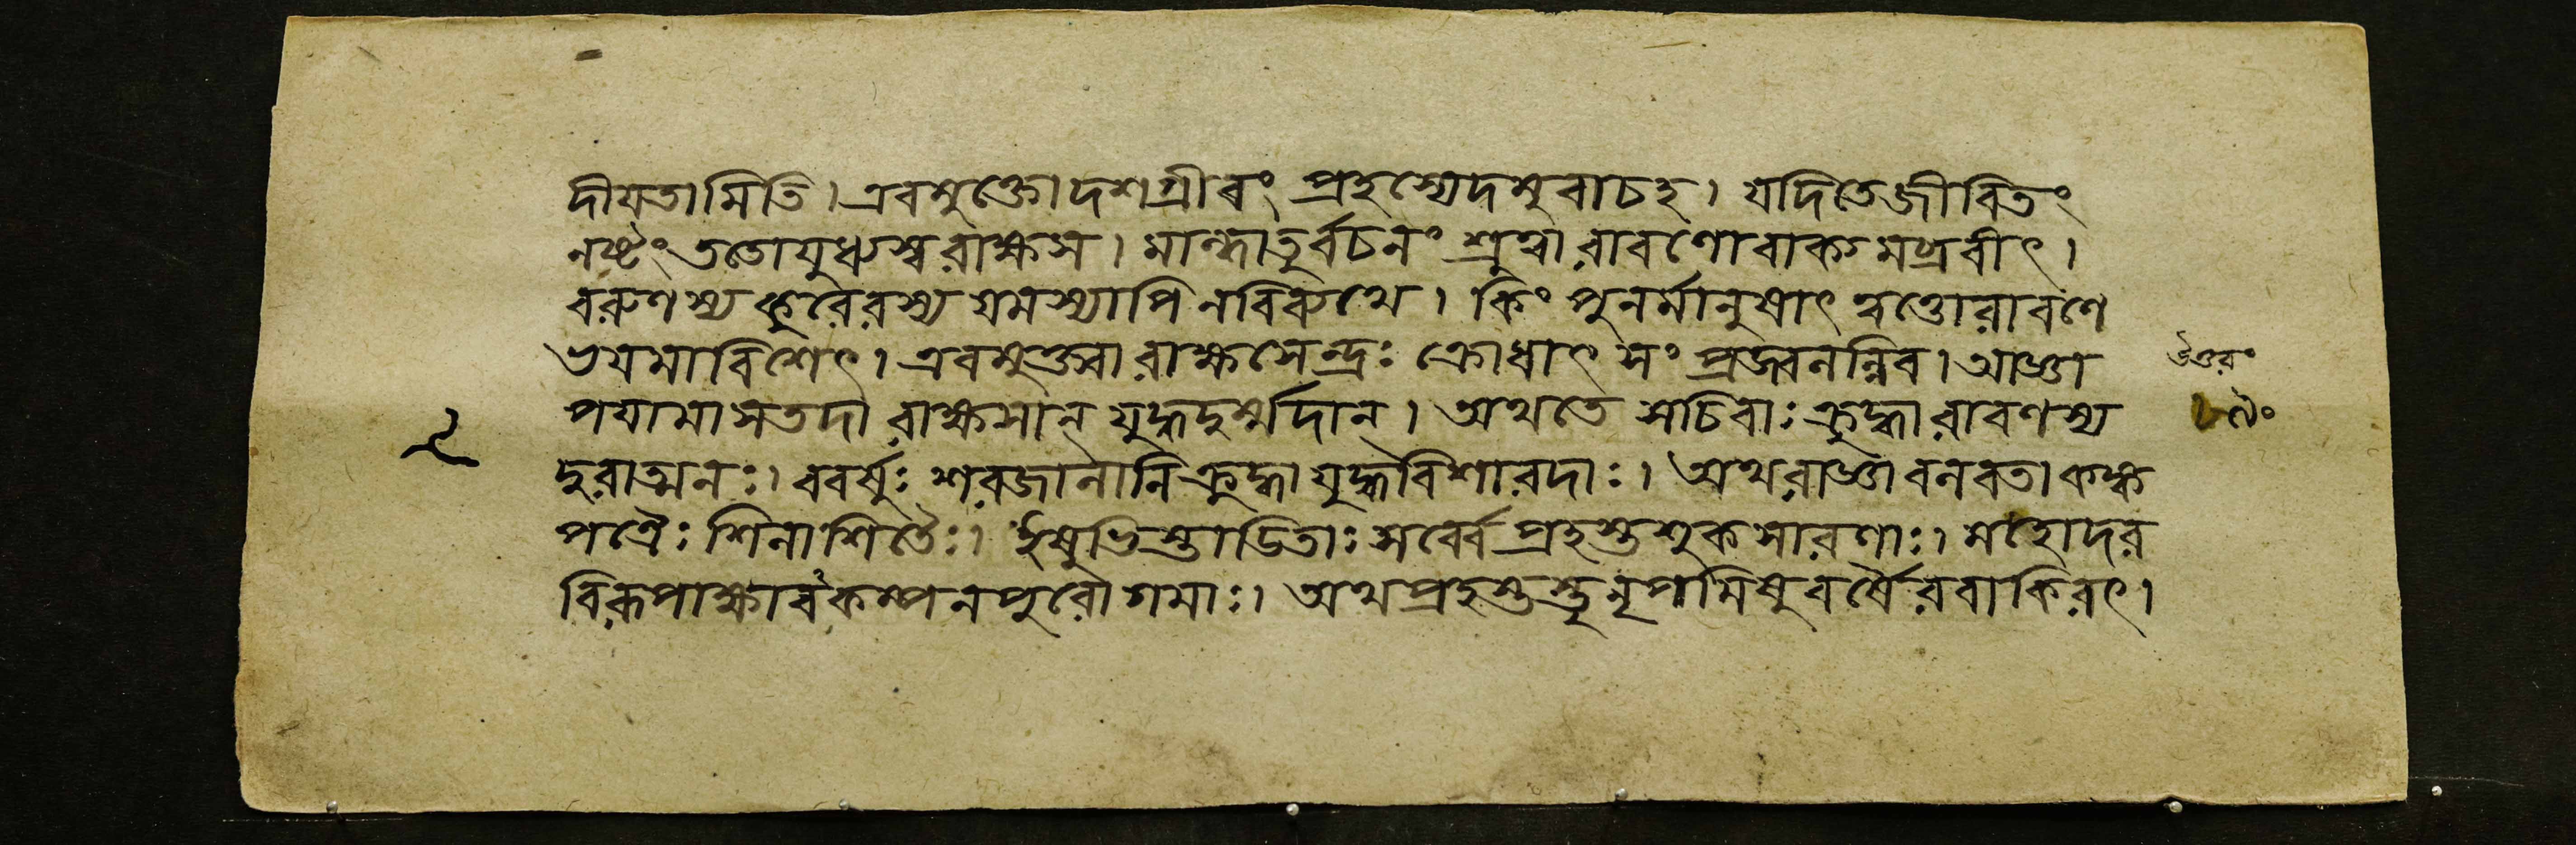 দীযতামিতি। এবমুক্তোদশগ্রীবং প্রহস্যেদমুবাচহ। যদিতেজীবিতং
নষ্টং ততোযুধ্যস্বরাক্ষস। মান্ধাতুর্বচনং শ্রুত্বা রাবণোবাক্যমব্রবীৎ।
বরুণস্য কুবেরস্য যমস্যাপি নবিব্যথে। কিং পুনর্মানুষাৎ ত্বত্তোরাবণে
ভযমাবিশেৎ। এবমুক্ত্বা রাক্ষসেন্দ্রঃ ক্রোধাৎ সং প্রজ্বলন্নিব। আজ্ঞা
পযামাসতদা রাক্ষসান্ যুদ্ধদুর্ম্মদান্। অথতে সচিবাঃ ক্রুদ্ধা রাবণস্য
দুরাত্মনঃ। ববর্ষুঃ শরজালানি ক্রুদ্ধা যুদ্ধবিশারদাঃ। অথরাজ্ঞা বলবতা কঙ্ক
পত্রৈঃ শিলাশিতৈঃ। ইষুভিস্তাডিতাঃ সর্ব্বে প্রহস্তশুকসারণাঃ। মহোদর
বিরূপাক্ষাবকম্পনপুরোগমাঃ। অথপ্রহস্তস্তু নৃপমিষুবর্ষৈরবাকিরৎ।